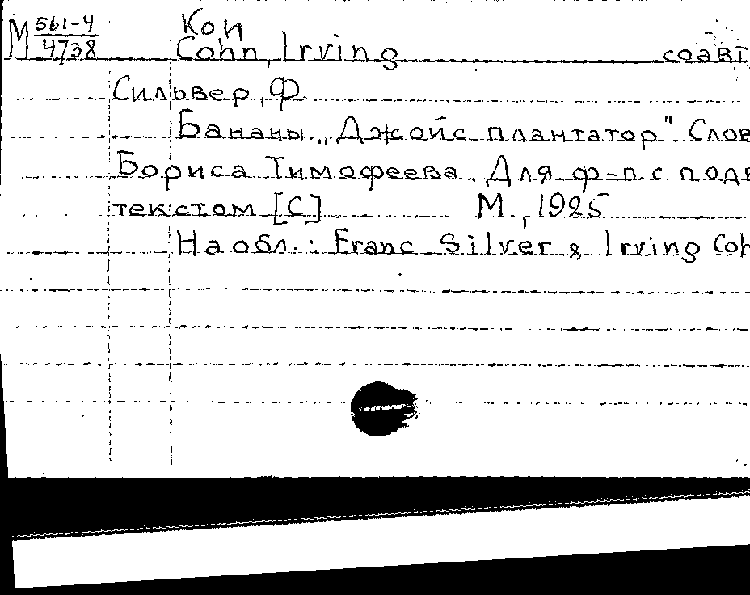 М 561-4
4738
Кон
Cohn, Irving соавт
Сильвер, Ф
Бананы. „Джойс плантатор". Слов
Бориса Тимофеева. Для ф-п. с подв
текстом [С] М., 1925
На обл.: Franc Silver & Irving Coh